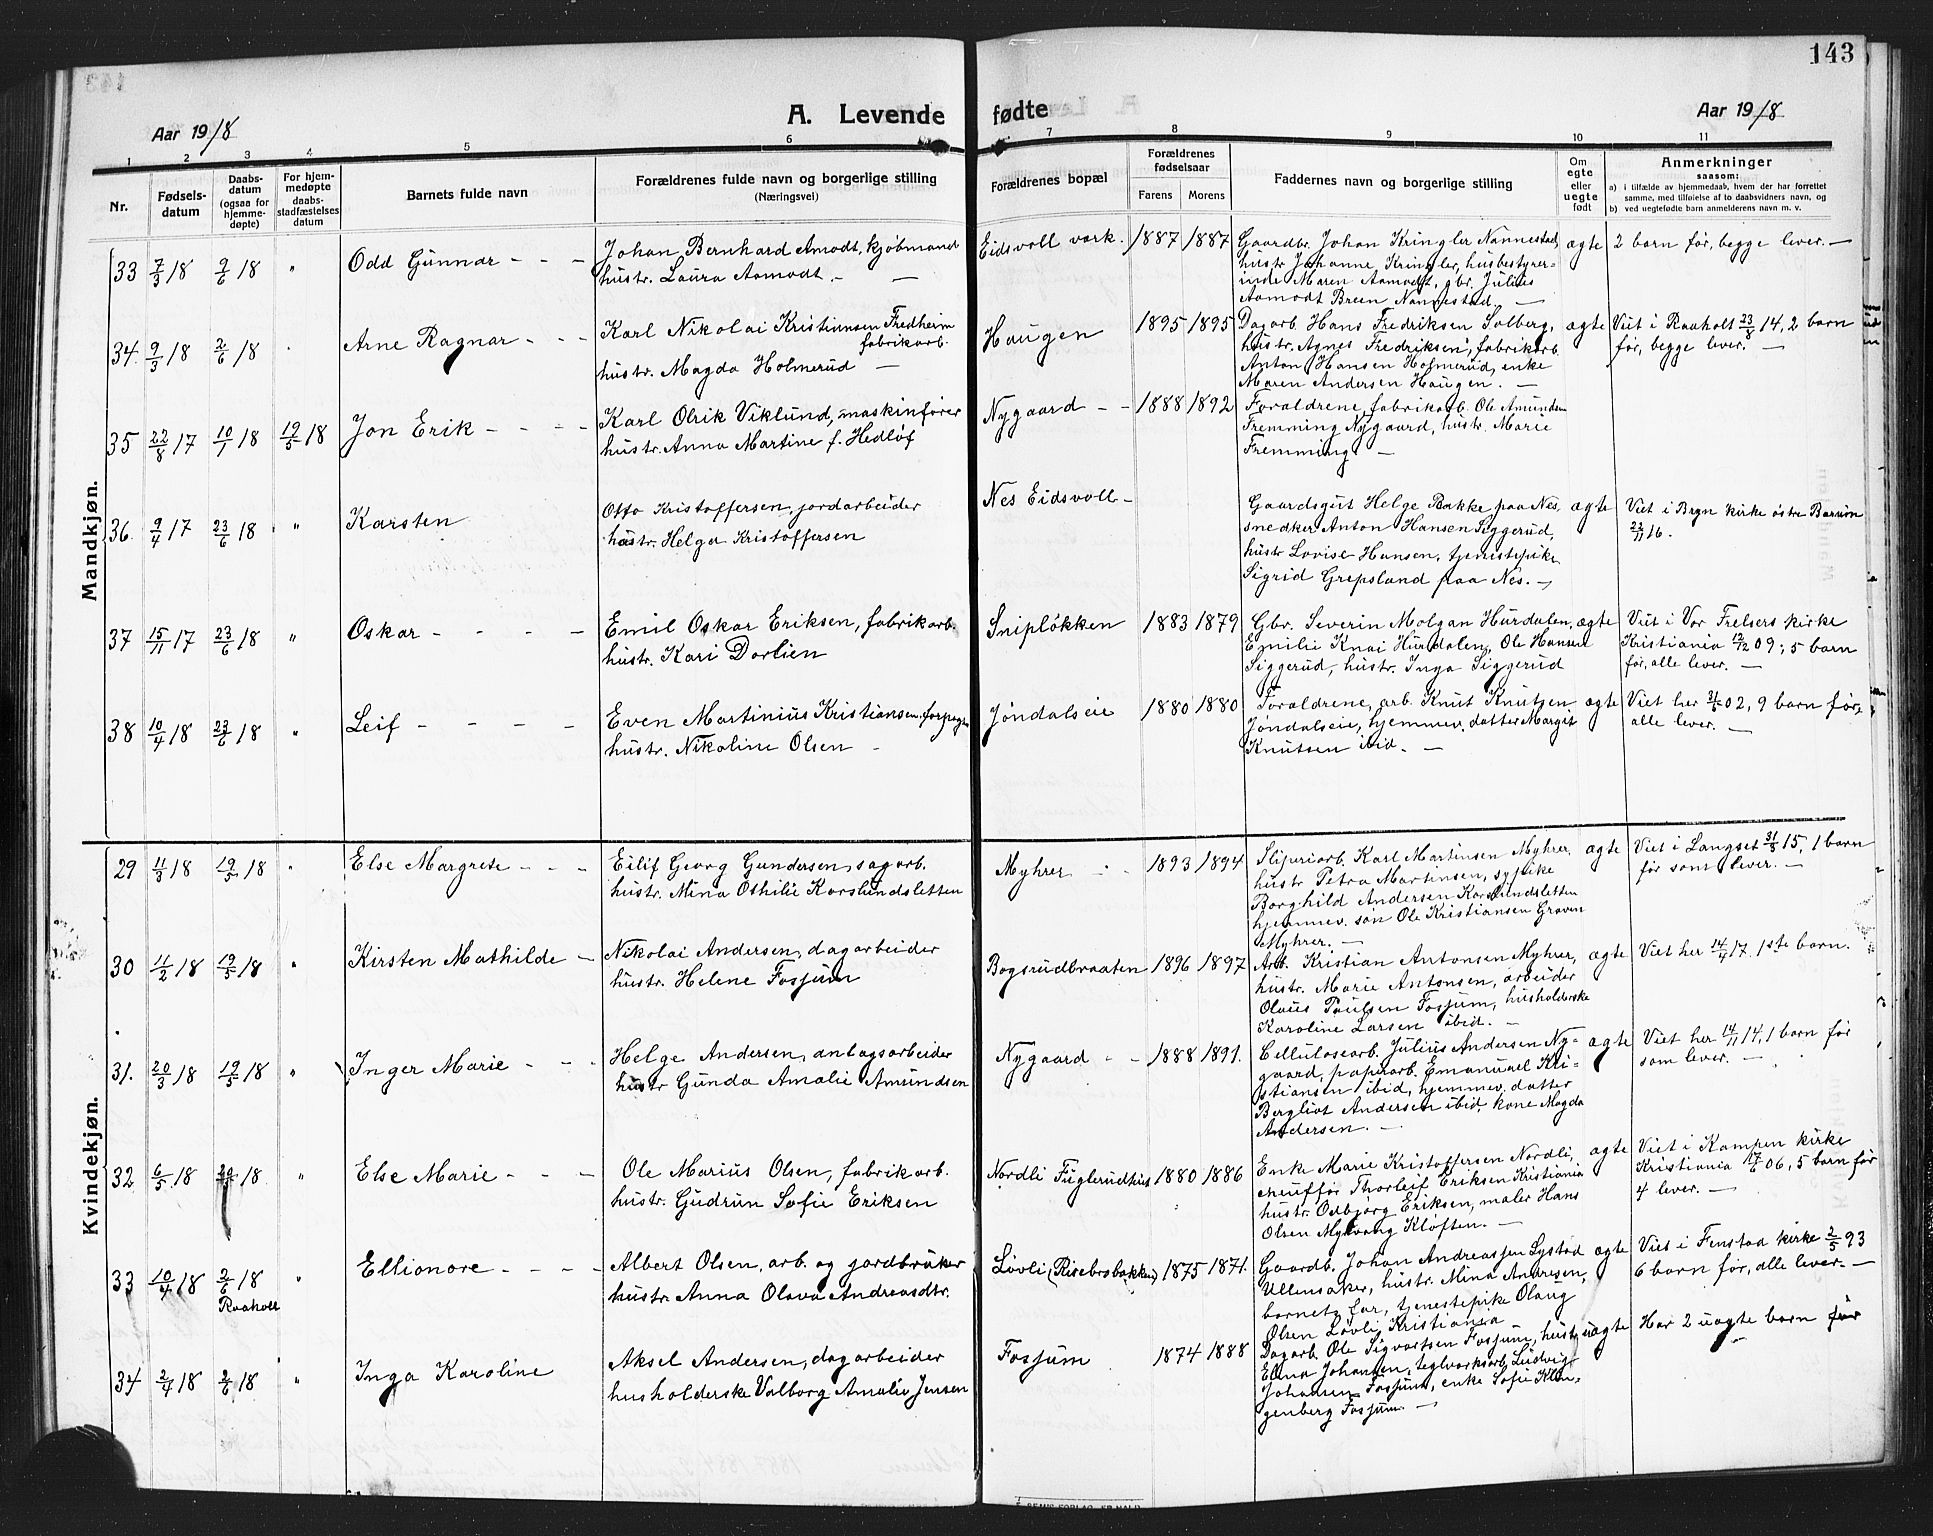 143
A. Levende fødte
Aar 1918
Aar 1918
1 2 3 4 5 6 7 8 9 10 11
Nr.
Fødsels-
datum
Daabs-
datum
(ogsaa for
hjemme-
døpte)
For hjem-
medøpte
daabs-
stadfæstelses
datum
Barnets fulde navn
Forældrenes fulde navn og borgerlige stilling
(Næringsvei)
Forældrenes bopæl
Forældrenes
fødselsaar
Farens Morens
Faddernes navn og borgerlige stilling
Om
egte
eller
uegte
født
Anmerkninger
saasom:
a) i tilfælde av hjemmedaab, hvem der har forrettet
samme, med tilføielse af to daabsvidners navn, og
b) ved uegtefødte barn anmelderens navn m. v.
Mandkjøn.
33 7/3 18 9/6 18 "
Odd Gunnar - - -
Johan Bernhard Amodt, kjøbmand
hustr. Laura Aamodt. - —
Eidsvoll værk. 1887 1887
Gaardbr. Johan Kringler Nannestad,
hustr Johanne Kringler, husbestyrer-
inde Maren Aamodt, gbr. Julius
Aamodt Breen Nannestad. —
ægte
2 barn før, begge lever. —
34. 9/3 18 2/6 18 "
Arne Ragnar - - -
Karl Nikolai Kristiansen Fredheim
fabrikarb.
hustr. Magda Holmerud —
Haugen 1895 1895
Dagarb. Hans Fredriksen Solberg,
hustr. Agnes Fredriksen, fabrikarb.
Anton Hansen Holmerud, enke
Maren Andersen Haugen. —
ægte
Viet i Raaholt 23/8 14, 2 barn
før, begge lever. —
35 22/8 17 10/1 18 19/5 18
Jon Erik - - - -
Karl Olrik Viklund, maskinfører
hustr. Anna Martine f. Hedløf
Nygaard - - 1888 1892
Forældrene, fabrikarb. Ole Amundsen
Fremming Nygaard, hustr. Marie
Fremming. —
36. 9/4 17 23/6 18 "
Karsten
Otto Kristoffersen, jordarbeider
hustr. Helga Kristoffersen
Nes Eidsvoll -
Gaardsgut Helge Bakke paa Nes,
snedker Anton Hansen Siggerud,
hustr Lovise Hansen, tjenestepike
Sigrid Grepsland paa Nes. -
ægte
Viet i Bryn kirke østre Bærum
22/11 16.
37 15/11 17 23/6 18 "
Oskar - - - -
Emil Oskar Eriksen, fabrikarb.
hustr. Kari Dorlien
Snipløkken 1883 1879
Gbr. Severin Molgan Hurdalen,
Emilie Knai Hurdalen, Ole Hansen
Siggerud, hustr. Inga Siggerud
ægte
Viet i Vor Frelsers kirke
Kristiania 12/12 09; 5 barn
før, alle lever. —
38 10/4 18 23/6 18 "
Leif - - - -
Even Martinius Kristiansen,
hustr. Nikoline Olsen -
Jøndalseie 1880 1880
Forældrene, arb. Knut Knutzen
Jøndalseie, hjemmev. datter Margit
Knutsen ibid. —
ægte
Viet her 02, 9 barn før,
alle lever. —
Kvindekjøn.
29 11/3 18 19/5 18 "
Else Margrete - - -
Eilif Georg Gundersen, sagarb.
hustr. Mina Othilie Korslundsletten
Myhrer - - 1893 1894
Sliperiarb. Karl Martinsen Myhrer,
hustr Petra Martinsen, sypike
Borghild Andersen Korslundsletten
hjemmev. søn Ole Kristiansen Graven
Myhrer. —
ægte
Viet i Langset 31/5 15, 1 barn
før som lever. —
30 11/2 18 19/5 18 "
Kirsten Mathilde -
Nikolai Andersen, dagarbeider
hustr. Helene Fosjum
Bogsrudbraaten 1896 1897
Arb. Kristian Antonsen Myhrer,
hustr. Marie Antonsen, arbeider
Olaus Paulsen Fosjum, husholderske
Karoline Larsen ibid. —
ægte
Viet her 14/4 17. 1ste barn.
31. 20/3 18 19/5 18 "
Inger Marie - - -
Helge Andersen, anlagsarbeider
hustr Gunda Amalie Amundsen
Nygaard - - 1888 1891.
Cellulosearb. Julius Andersen Ny-
gaard, papirarb. Emanuael Kri-
stiansen ibid, hjemmev. datter
Bergliot Andersen ibid, kone Magda
Andersen. —
ægte
Viet her 14/11 14, 1 barn før
som lever. —
32 6/5 18 18 "
Else Marie - - -
Ole Marius Olsen, fabrikarb.
hustr. Gudrun Sofie Eriksen
Nordli Fuglerudhus 1880 1886
Enke Marie Kristoffersen Nordli,
chuffør Thorleif Eriksen Kristiania
hustr. Oxbjørg Eriksen, maler Hans
Olsen Myrvang Kløften. —
ægte
Viet i Kampen kirke
Kristiania 17/6 06, 5 barn før
4 lever. —
33 10/4 18 2/6 18 "
Raaholt
Ellionore - - - -
Albert Olsen, arb. og jordbruker
hustr. Anna Olava Andreasdtr.
Løvli (Risebrobakken) 1875 1871.
Gaardb. Johan Andreassen Lystad
Ullensaker, hustr. Mina Andresen,
barnets far, tjenestepike Olaug
Olsen Løvli Kristiania
ægte
Viet i Fenstad kirke 2/5 93
6 barn før, alle lever. —
34 2/4 18 2/6 18 "
Inga Karoline
Aksel Andersen, dagarbeider
husholderske Valborg Amalie Jensen
Fosjum 1874 1888
Dagarb. Ole Sigvartsen Fosjum, hustr
Elina Johansen, teglverksarb. Ludvig
Johansen Fosjum, enke Sofie Klin-
genberg Fosjum. —
uægte
Har 2 uægte barn før
—